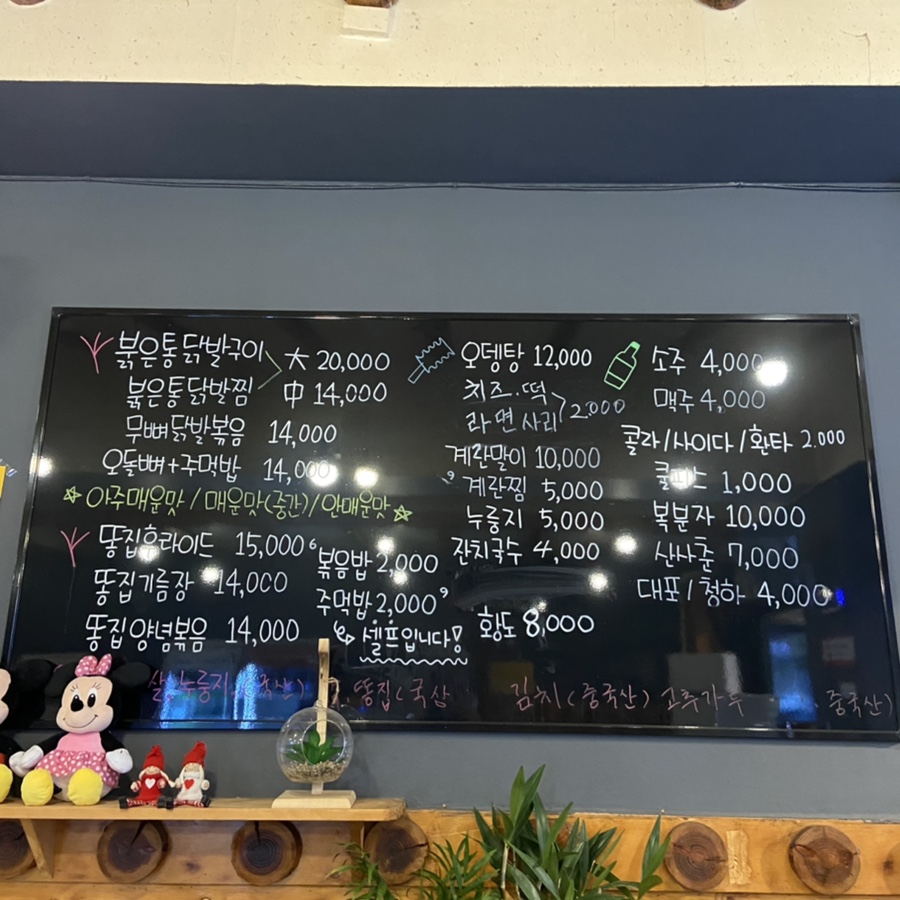 붉은통닭발구이 大 20,000
붉은통닭발찜 中 14,000
무뼈닭발볶음 14,000
오돌뼈+주먹밥 14,000
☆ 아주매운맛 / 매운맛(중간) / 안매운맛 ☆
똥집후라이드 15,000
똥집기름장 14,000
똥집양념볶음 14,000
볶음밥 2,000
주먹밥 2,000
셀프입니다!
오뎅탕 12,000
치즈.떡
라면사리 2.000
계란말이 10,000
계란찜 5,000
누룽지 5,000
잔치국수 4,000
황도 8,000
소주 4,000
맥주 4,000
콜라/사이다/환타 2.000
쿨피스 1,000
복분자 10,000
산사춘 7,000
대포/청하 4,000
누룽지 똥집(국산 김치(중국산) 고추가루 중국산)